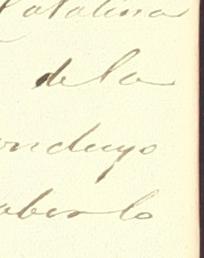 Catalina
de la
onduyo
aberlo